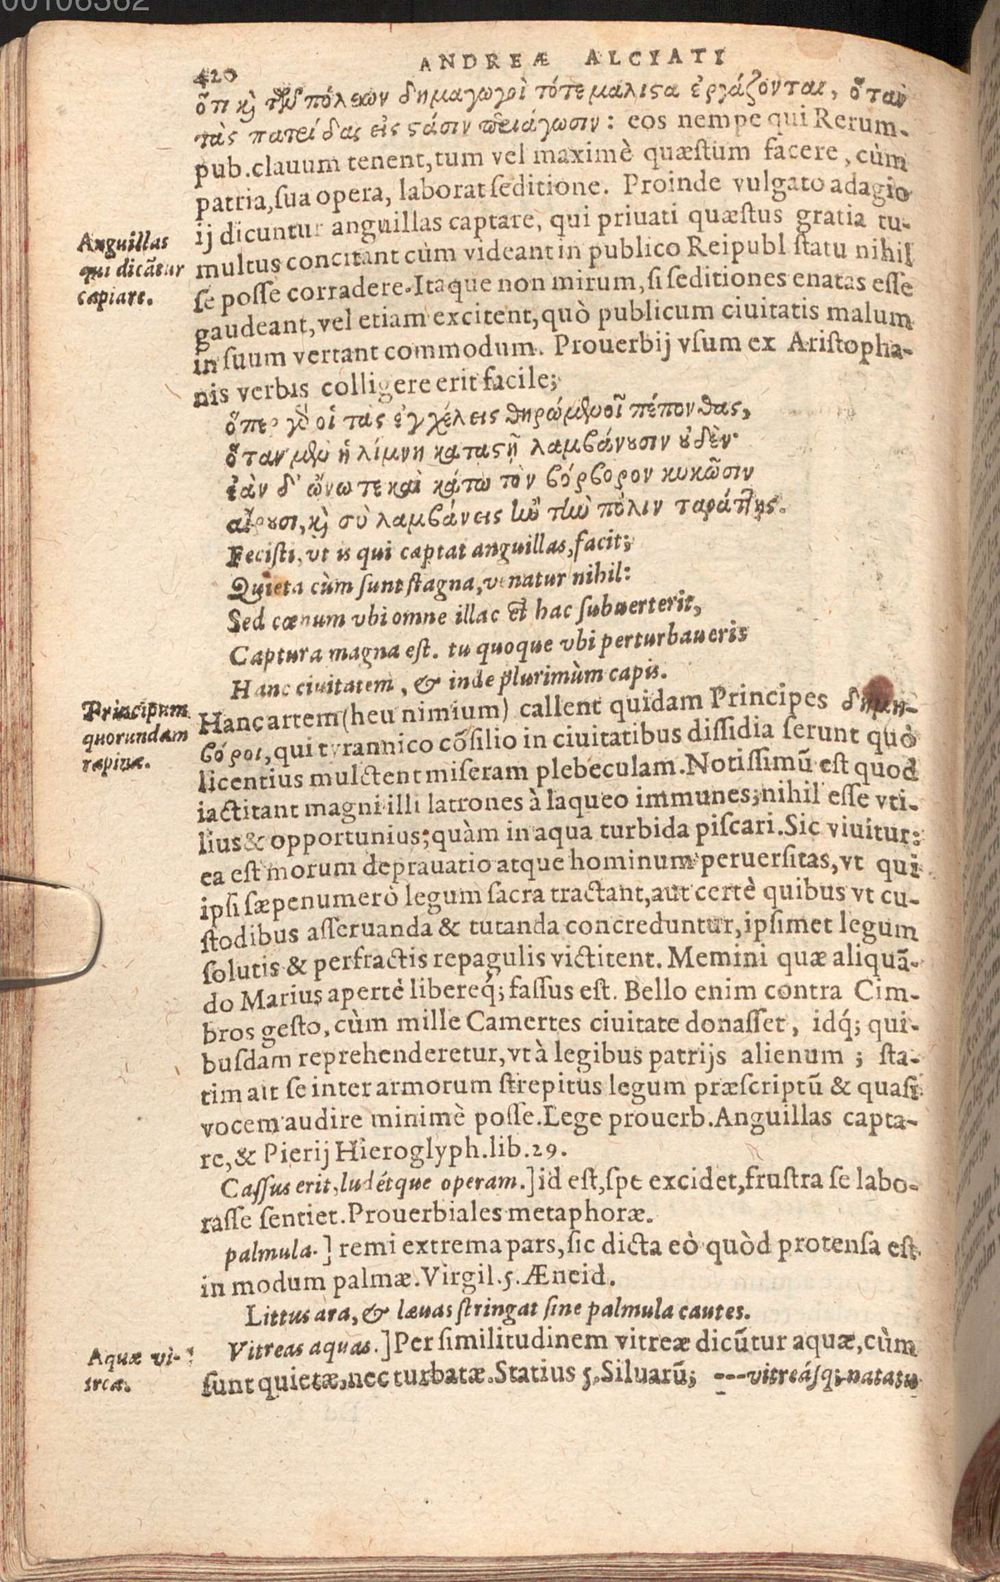 00106362
420
ANDREÆ ALCIATI
ὅτι κὶ τῶν πόλεων δημαγωγοὶ τότε μάλιςα ἐργάζονται, ὅταν
τὰς πατρίδας εἰς ςάσιν περιάγωσιν: eos nempe qui Rerum-
pub. clauum tenent, tum vel maximè quæstum facere, cùm
patria, sua opera, laborat seditione. Proinde vulgato adagio
ij dicuntur anguillas captare, qui priuati quæstus gratia tu-
multus concitant cùm videant in publico Reipubl statu nihil
se posse corradere. Itaque non mirum, si seditiones enatas esse
gaudeant, vel etiam excitent, quò publicum ciuitatis malum
in suum vertant commodum. Prouerbij vsum ex Aristopha-
nis verbis colligere erit facile;
Anguillas
qui dicãtur
captare.
ὅπερ γὸ οἱ τὰς ἐγχέλεις θηρώμενοι πέπονθας,
ὅταν μὲν ἡ λίμνη καταςῇ λαμβάνουσιν ουδὲν·
ἐὰν δ' ἄνω τε καὶ κάτω τὸν βόρβορον κυκῶσιν
αἱροῦσι, κὶ σὺ λαμβάνεις ἢν τὴν πόλιν ταράττῃς.
Fecisti, vt is qui captat anguillas, facit;
Quieta cùm sunt stagna, venatur nihil:
Sed cœnum vbi omne illac et hac subuerterit,
Captura magna est. tu quoque vbi perturbaueris
Hanc ciuitatem, & inde plurimùm capis.
Hanc artem (heu nimium) callent quidam Principes δημη-
βόροι, qui tyrannico cõsilio in ciuitatibus dissidia serunt quò
licentius mulctent miseram plebeculam. Notissimũ est quod
iactitant magni illi latrones à laqueo immunes; nihil esse vti-
lius & opportunius; quàm in aqua turbida piscari. Sic viuitur:
ea est morum deprauatio atque hominum peruersitas, vt qui
ipsi sæpenumerò legum sacra tractant, aut certè quibus vt cu-
stodibus asseruanda & tutanda concreduntur, ipsimet legum
solutis & perfractis repagulis victitent. Memini quæ aliquã-
do Marius apertè libereq́; fassus est. Bello enim contra Cim-
bros gesto, cùm mille Camertes ciuitate donasset, idq́; qui-
busdam reprehenderetur, vt à legibus patrijs alienum; sta-
tim ait se inter armorum strepitus legum præscriptũ & quasi
vocem audire minimè posse. Lege prouerb. Anguillas capta-
re, & Pierij Hieroglyph. lib. 29.
Principum
quorundam
rapinæ.
Cassus erit, ludétque operam.] id est, spe excidet, frustra se labo-
rasse sentiet. Prouerbiales metaphoræ.
palmula.] remi extrema pars, sic dicta eò quòd protensa est
in modum palmæ. Virgil. 5. Æneid.
Littus ara, & læuas stringat sine palmula cautes.
Vitreas aquas.] Per similitudinem vitreæ dicũtur aquæ, cùm
sunt quietæ, nec turbatæ. Statius 5. Siluarũ; ---vitreásq; natatu
Aquæ vi-
treæ.